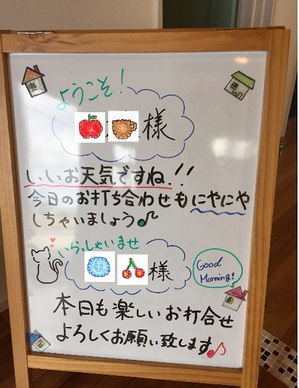 ようこそ!
様
いいお天気ですね!!
今日のお打ち合わせもにやにや
しちゃいましょう♪
いらっしゃいませ
様
Good
Morning!
本日も楽しいお打合せ
よろしくお願い致します♪